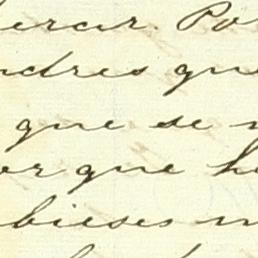 ercer. Po
ndres que
que se n
or que h
bieses n